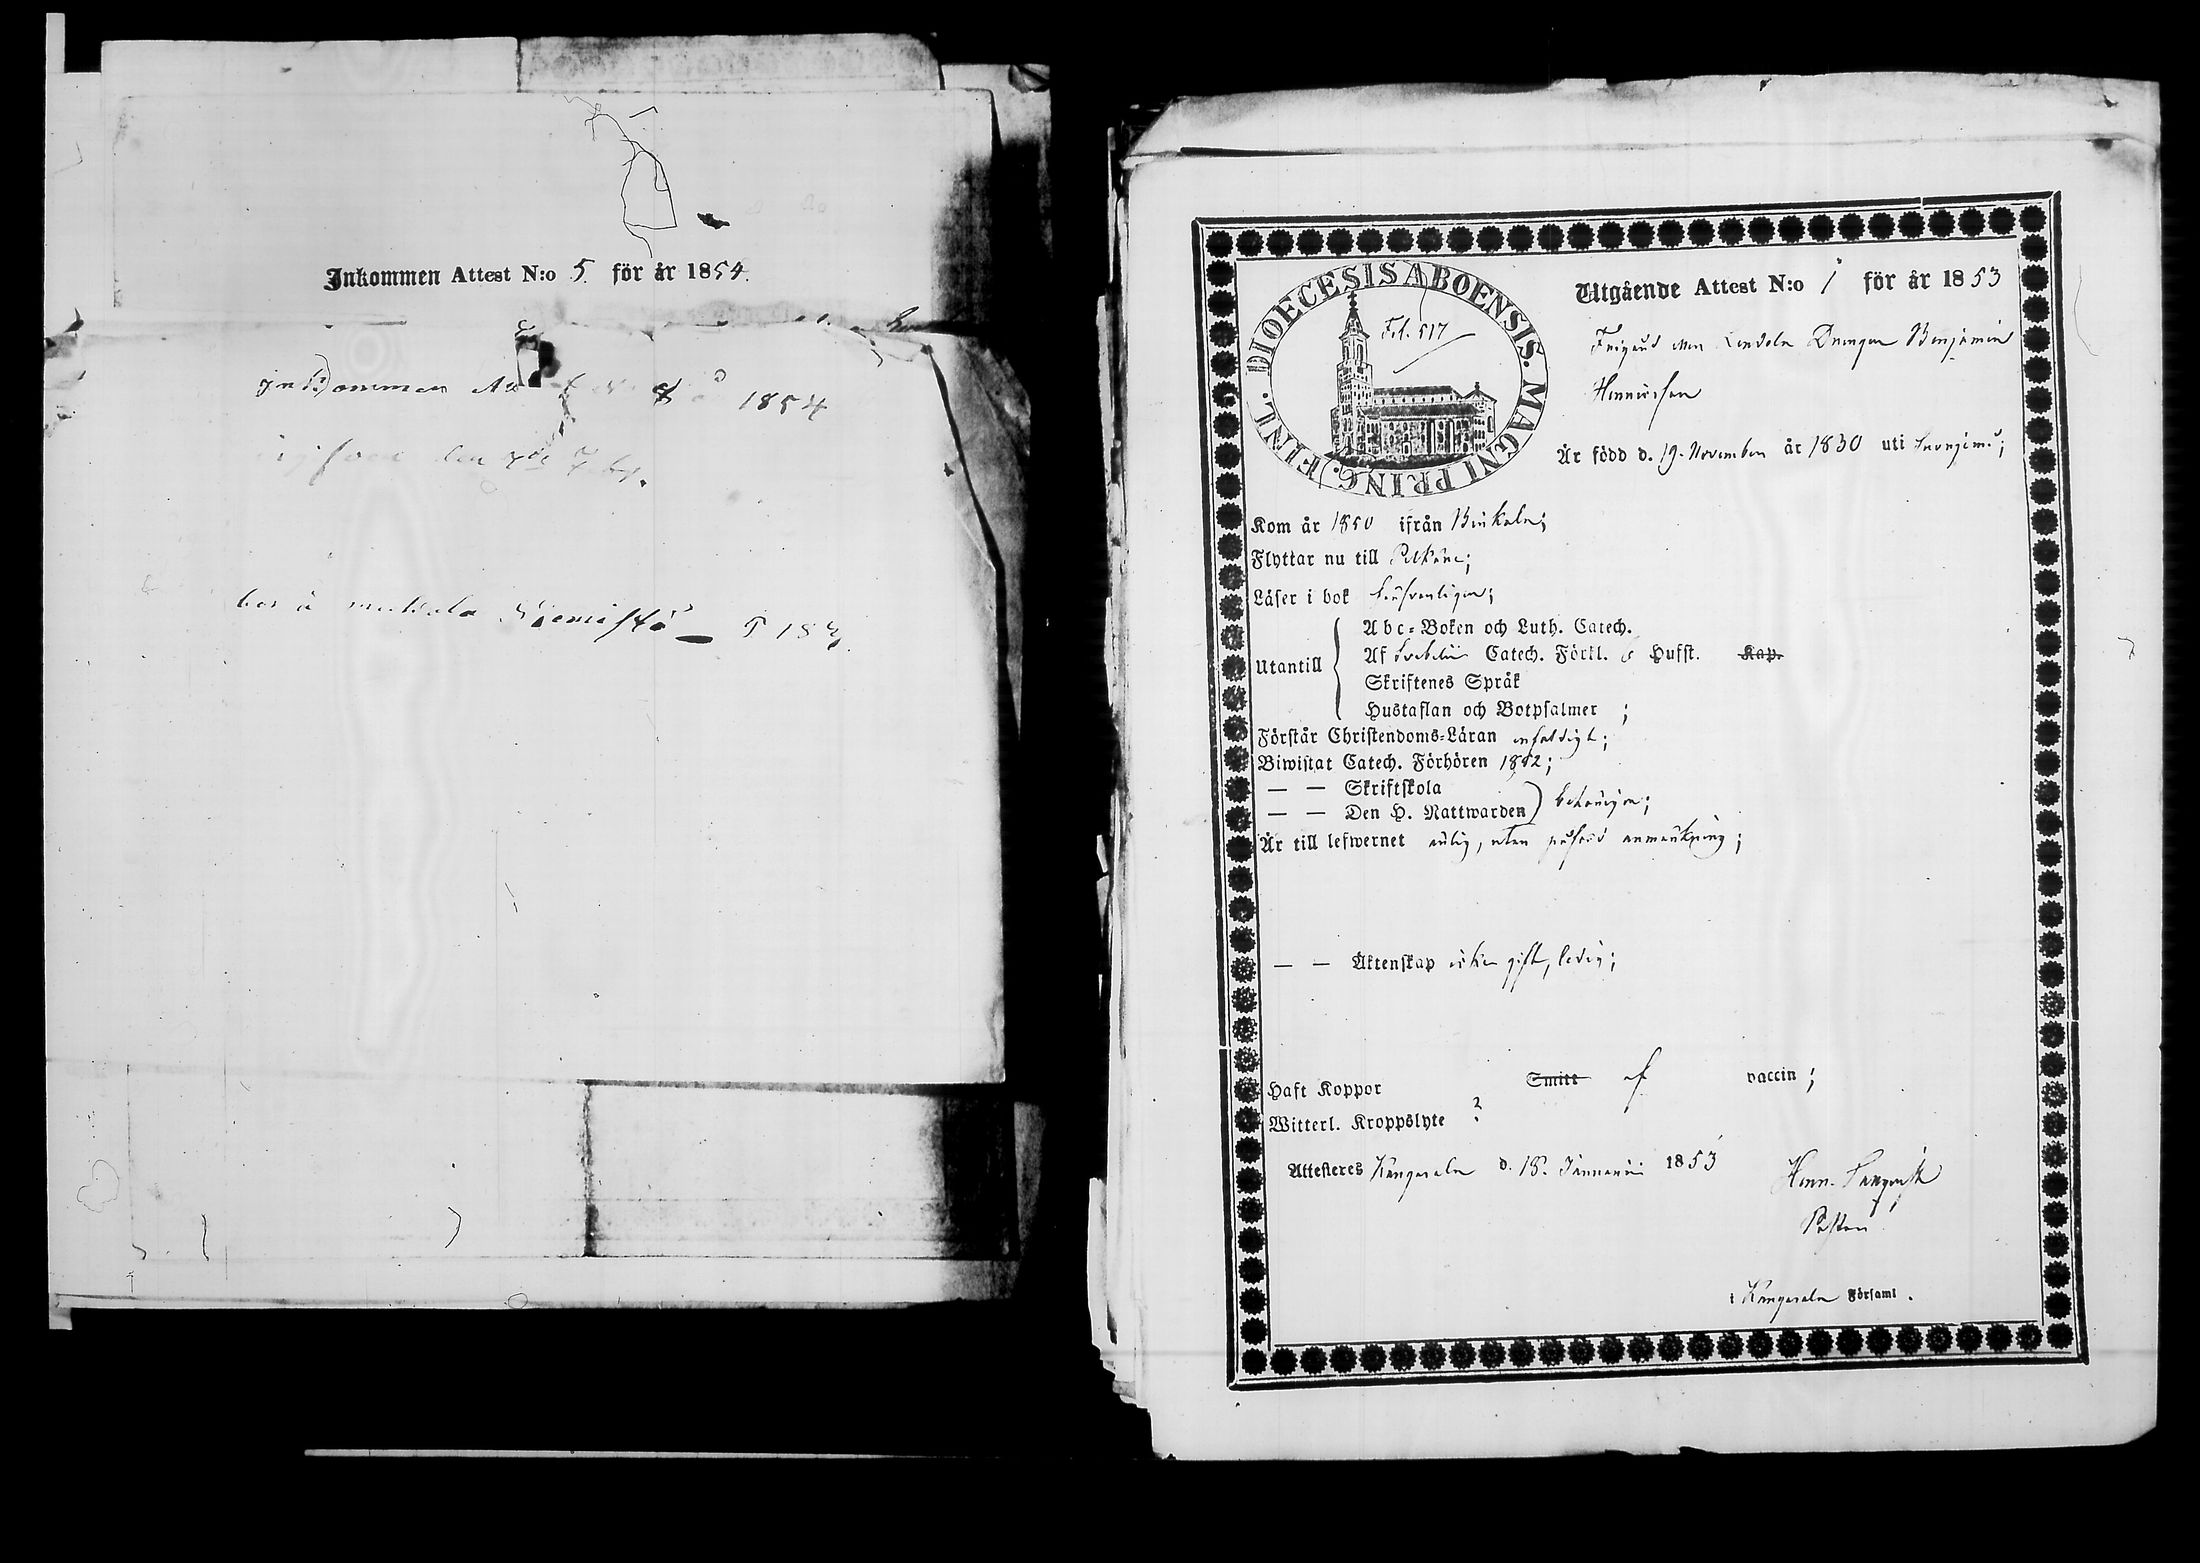 Inkommen Attest N:o 5. för år 1854.
Inkommen 1854
den 7de
bor i Niemistö P 184
DIOECESIS ABOENSIS. MAGNI PRINC. FINL.
Fol. 517
Utgående Attest N:o 1 för år 1853
Drängen Benjamin
Henricsson
Är född d. 19. November år 1830 uti
Kom år 1850 ifrån Birkala;
Flyttar nu till Pelkäne;
Läser i bok försvarligen;
Utantill
Abc-Boken och Luth. Catech.
Af Svebelii Catech. Förkl. o Hufst. Kap.
Skriftenes Språk
Hustaflan och Botpsalmer ;
Förstår Christendoms-Läran enfaldigt;
Biwistat Catech. Förhören 1852;
— — Skriftskola
— — Den H. Nattwarden behörigen;
Är till lefwernet ärlig, utan anmärkning;
— — Äktenskap icke gift, ledig;
Haft Koppor Smitt af vaccin ;
Witterl. Kroppslyte ?
Attesteres Kangasala d. 18. Januarii 1853
Henr.
Pastor
i Kangasala Församl.